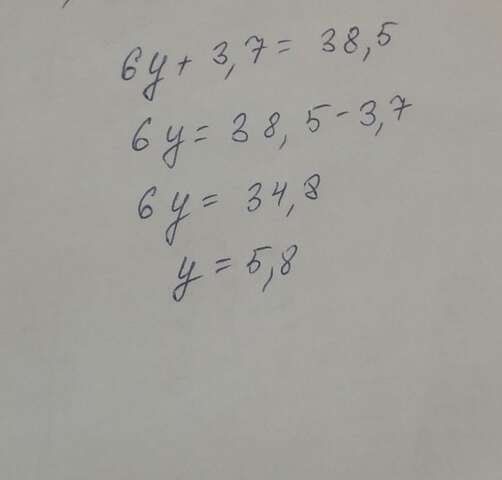 6y + 3,7 = 38,5
6y = 38,5 - 3,7
6y = 34,8
y = 5,8